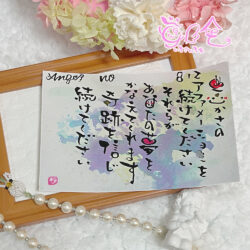 Angel no 8
心さの
アファメーションを
続けてください
それらが
あなたの夢を
かなえてくれます
奇跡を信じ
続けてください